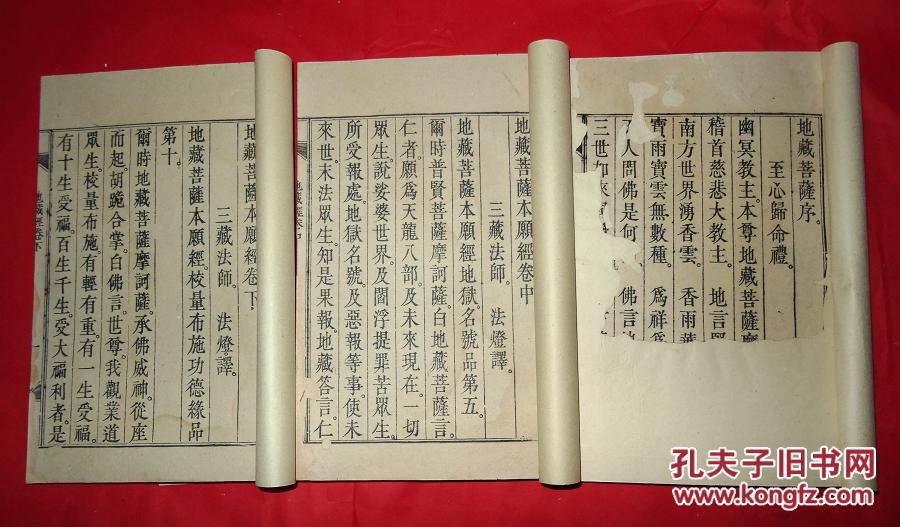 地藏菩薩序。
至心歸命禮。
幽冥教主。本尊地藏菩薩摩
稽首慈悲大教主。地言堅
南方世界湧香雲。香雨
寶雨寶雲無數種。爲祥爲
人問佛是何 佛言
三世如來
地藏菩薩本願經卷中
三藏法師。法燈譯。
地藏菩薩本願經地獄名號品第五。
爾時普賢菩薩摩訶薩。白地藏菩薩言。
仁者。願爲天龍八部。及未來現在。一切
眾生。說娑婆世界。及閻浮提罪苦眾生。
所受報處。地獄名號。及惡報等事。使未
來世末法眾生。知是果報。地藏答言。仁
地藏經卷中
地藏菩薩本願經卷下。
三藏法師。法燈譯。
地藏菩薩本願經校量布施功德緣品
第十。
爾時地藏菩薩摩訶薩。承佛威神。從座
而起。胡跪合掌。白佛言。世尊。我觀業道
眾生。校量布施。有輕有重。有一生受福。
有十生受福。百生千生。受大福利者。是
地藏經卷下
孔夫子旧书网
www.kongfz.com